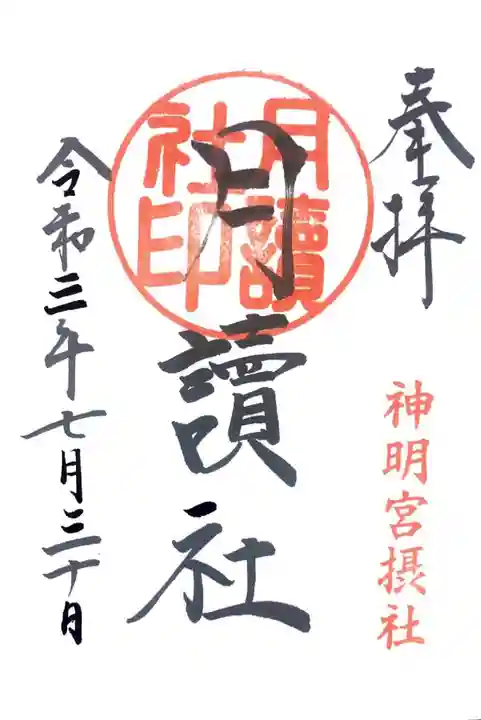 奉拝
神明宮摂社
月讀社
月讀
社印
令和三年七月三十日